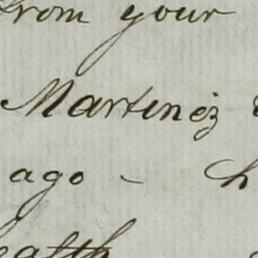 from your
Martinéz
ago - h
health